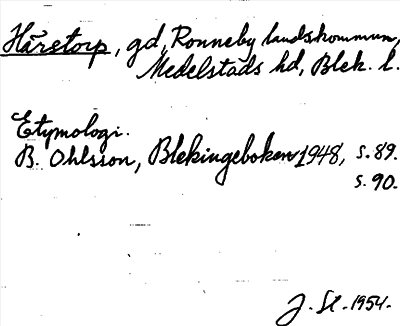 Hårstorp, gd, Ronneby landskommun,
Medelstads hd, Blek. l.
Etymologi.
B. Ohlsson, Blekingeboken 1948, s. 89.
s. 90.
J. Sl. 1954.